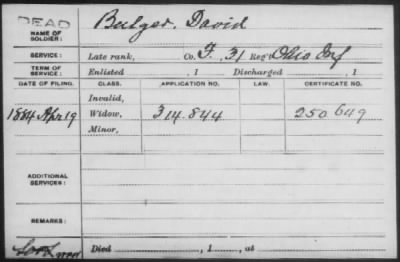 DEAD
NAME OF SOLDIER: Bulger, David
SERVICE: Late rank, Co. F, 31 Reg't Ohio Inf
TERM OF SERVICE: Enlisted , 1 Discharged , 1
DATE OF FILING. CLASS. APPLICATION NO. LAW. CERTIFICATE NO.
Invalid,
1884 Apr 19 Widow, 314.844 250 649
Minor,
ADDITIONAL SERVICES:
REMARKS:
Died , 1 , at